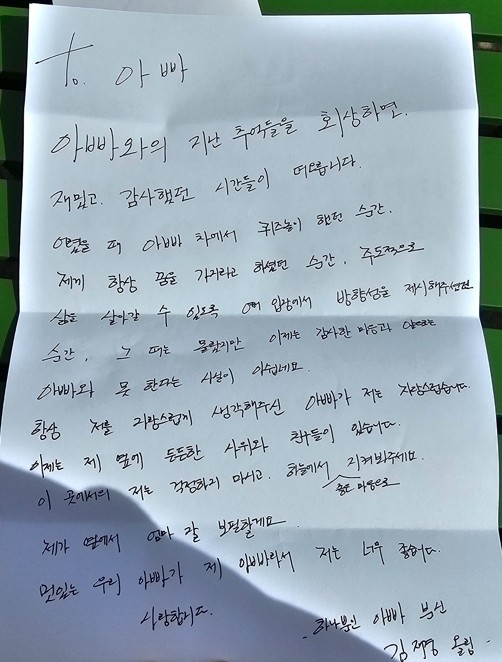 to. 아빠
아빠와의 지난 추억들을 회상하면.
재밌고. 감사했던 시간들이 떠오릅니다.
어렸을 때 아빠 차에서 퀴즈놀이 했던 순간.
제게 항상 꿈을 가지라고 하셨던 순간. 주도적으로
삶을 살아갈 수 있도록 입장에서 방향성을 제시해주셨던
순간. 그 때는 몰랐지만 이제는 감사한 마음과 앞으로는
아빠와 못 한다는 사실이 아쉽네요.
항상 저를 자랑스럽게 생각해주신 아빠가 저는 자랑스럽습니다.
이제는 제 옆에 든든한 사위와 친구들이 있습니다.
이 곳에서의 저는 걱정하지 마시고. 하늘에서 지켜봐주세요.
좋은 마음으로
제가 옆에서 엄마 잘 보필할게요.
멋있는 우리 아빠가 제 아빠라서 저는 너무 좋습니다.
사랑합니다.
- 하나뿐인 아빠 분신
김 올림 -